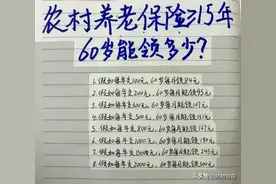 农村养老保险交15年
60岁能领多少?
1.假如每年交100元,60岁每月领84元
2.假如每年交200元,60岁每月能领95元
3.假如每年交300元,60岁每月能领107元
4.假如每年交500元,60岁每月能领131元
5.假如每年交800元,60岁每月能领167元
6.假如每年交1000元,60岁每月能领190元
7.假如每年交1500元,60岁每月能领245元
8.假如每年交2000元,60岁每月能领300元